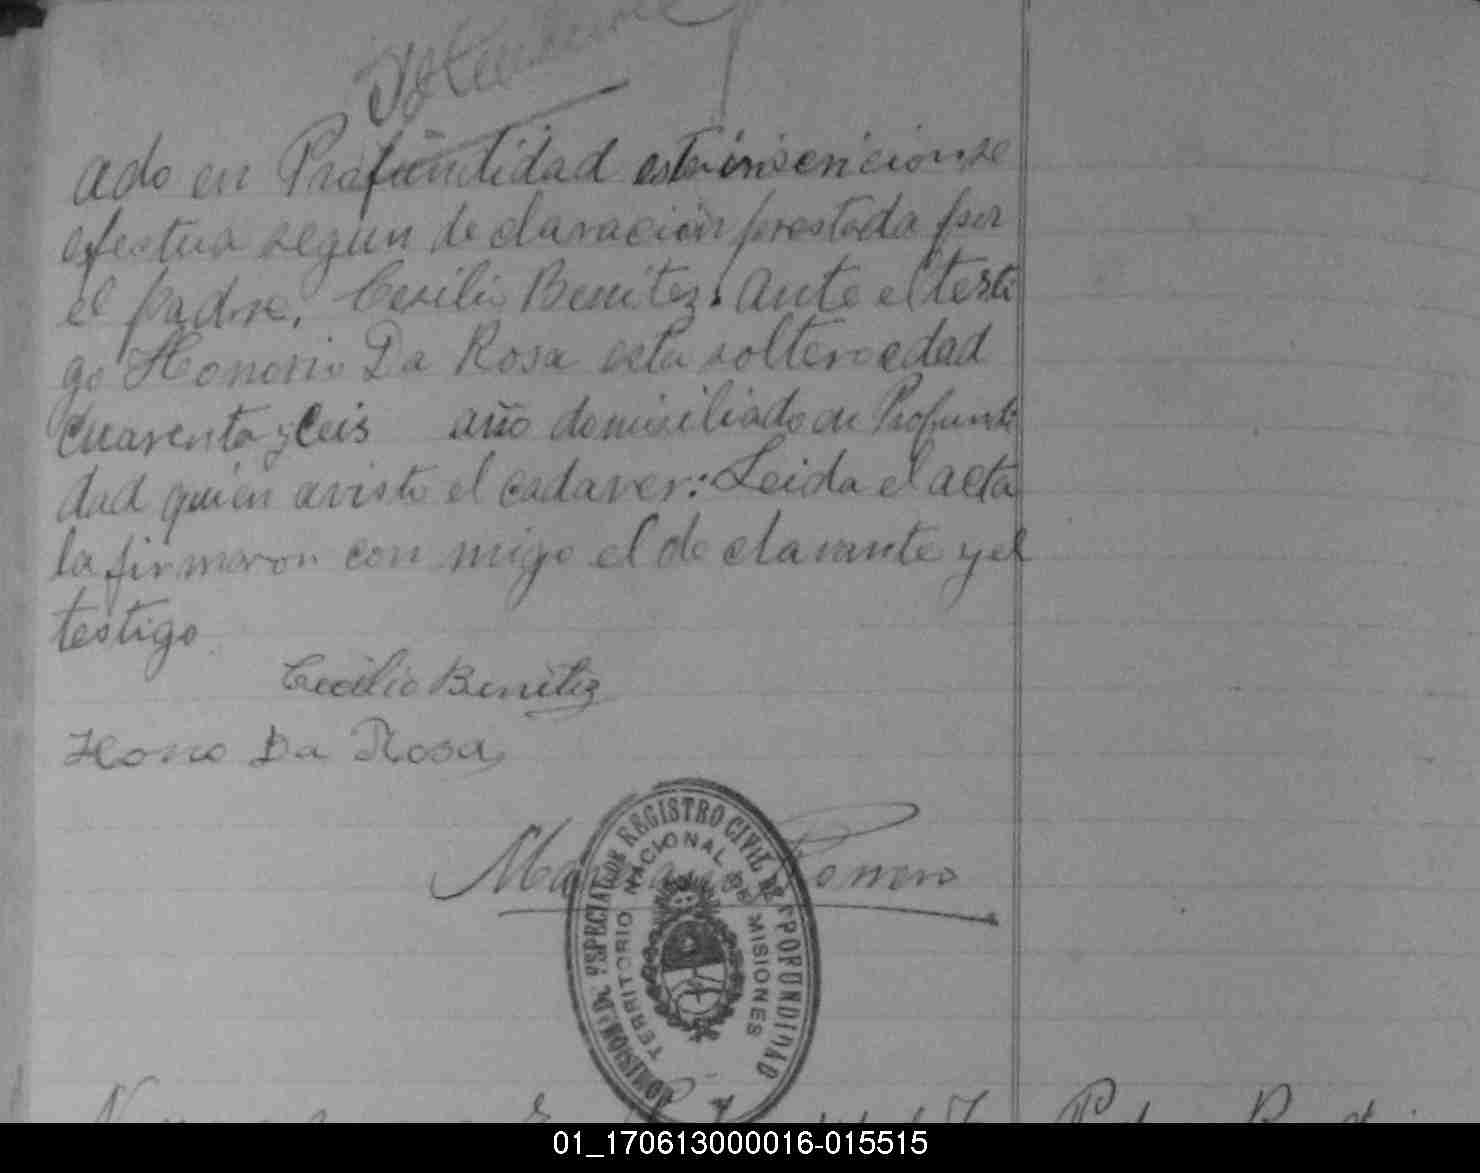 ado en Profuntidad esta insencion se
efectua segun declaracion prestada por
el padre, Cecilio Benitez. Ante el testi
go Honorio Da Rosa esta soltero edad
cuarenta y ceis año domiciliado en Profunti
dad quien avisto el cadaver: Leida el acta
la firmaron con migo el declarante y el
testigo
Cecilio Benitez
Hono Da Rosa
Romero
COMISION DE ESPECIAL DE REGISTRO CIVIL DE PROFUNDIDAD
TERRITORIO NACIONAL DE MISIONES
01_170613000016-015515